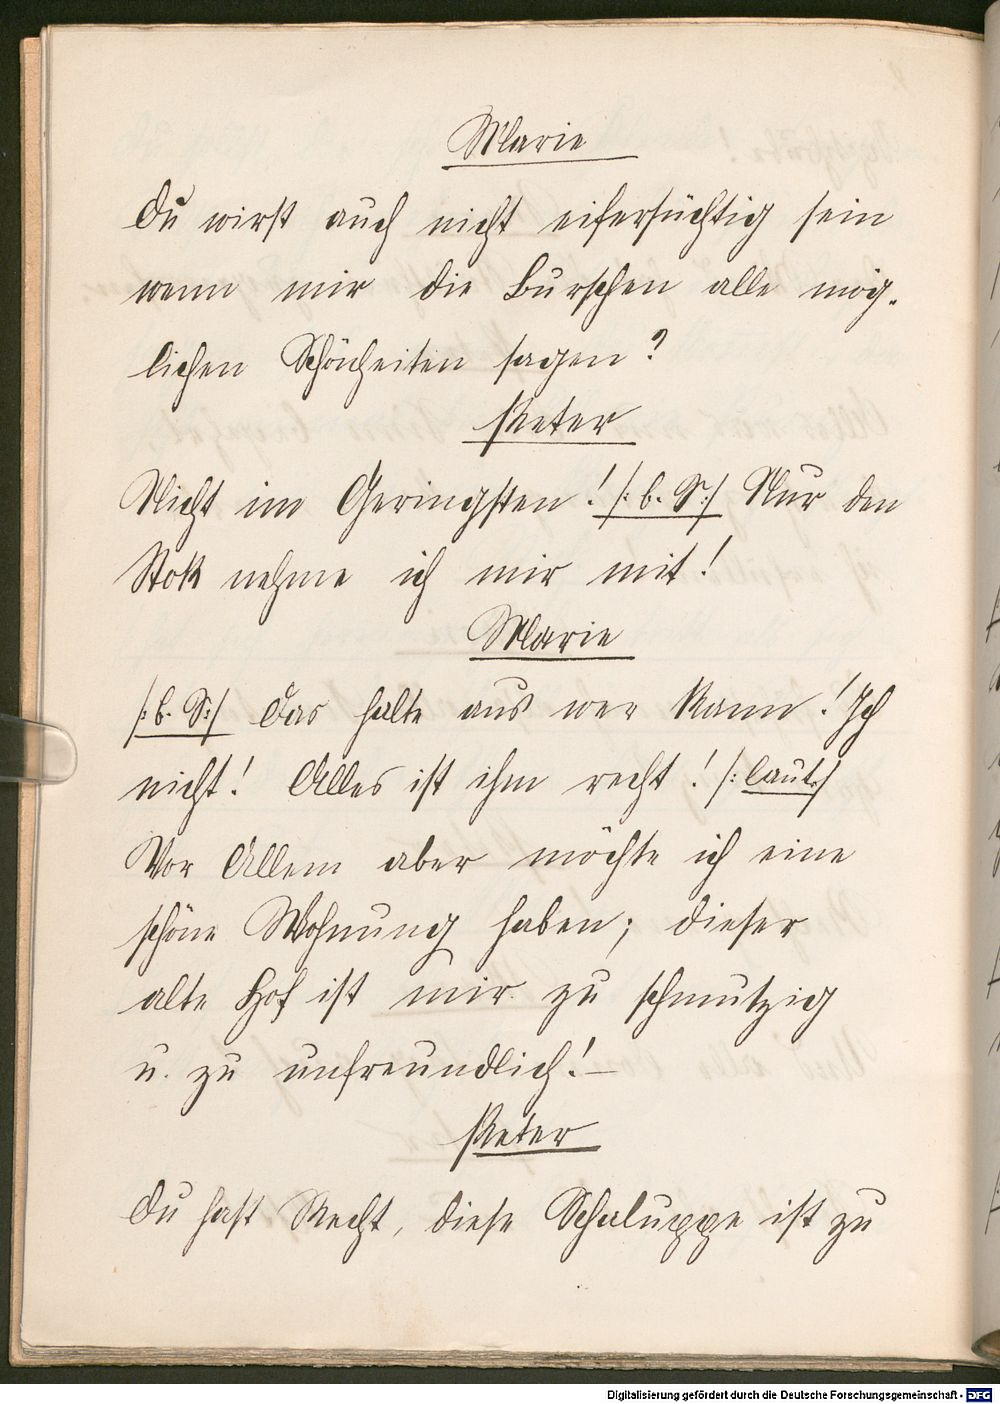 Marie
Du wirst auch nicht eifersüchtig sein
wenn mir die Burschen alle mög-
lichen Schönheiten sagen?
Peter
Nicht im Geringsten! /: b. S :/ Nur den
Stok nehme ich mir mit!
Marie
/: b. S :/ Das halte aus wer kann! Ich
nicht! Alles ist ihm recht! /: laut :/
Vor Allem aber möchte ich eine
schöne Wohnung haben; dieser
alte Hof ist mir zu schmutzig
u. zu unfreundlich! –
Peter
Du hast Recht, diese Schaluppe ist zu
Digitalisierung gefördert durch die Deutsche Forschungsgemeinschaft - DFG